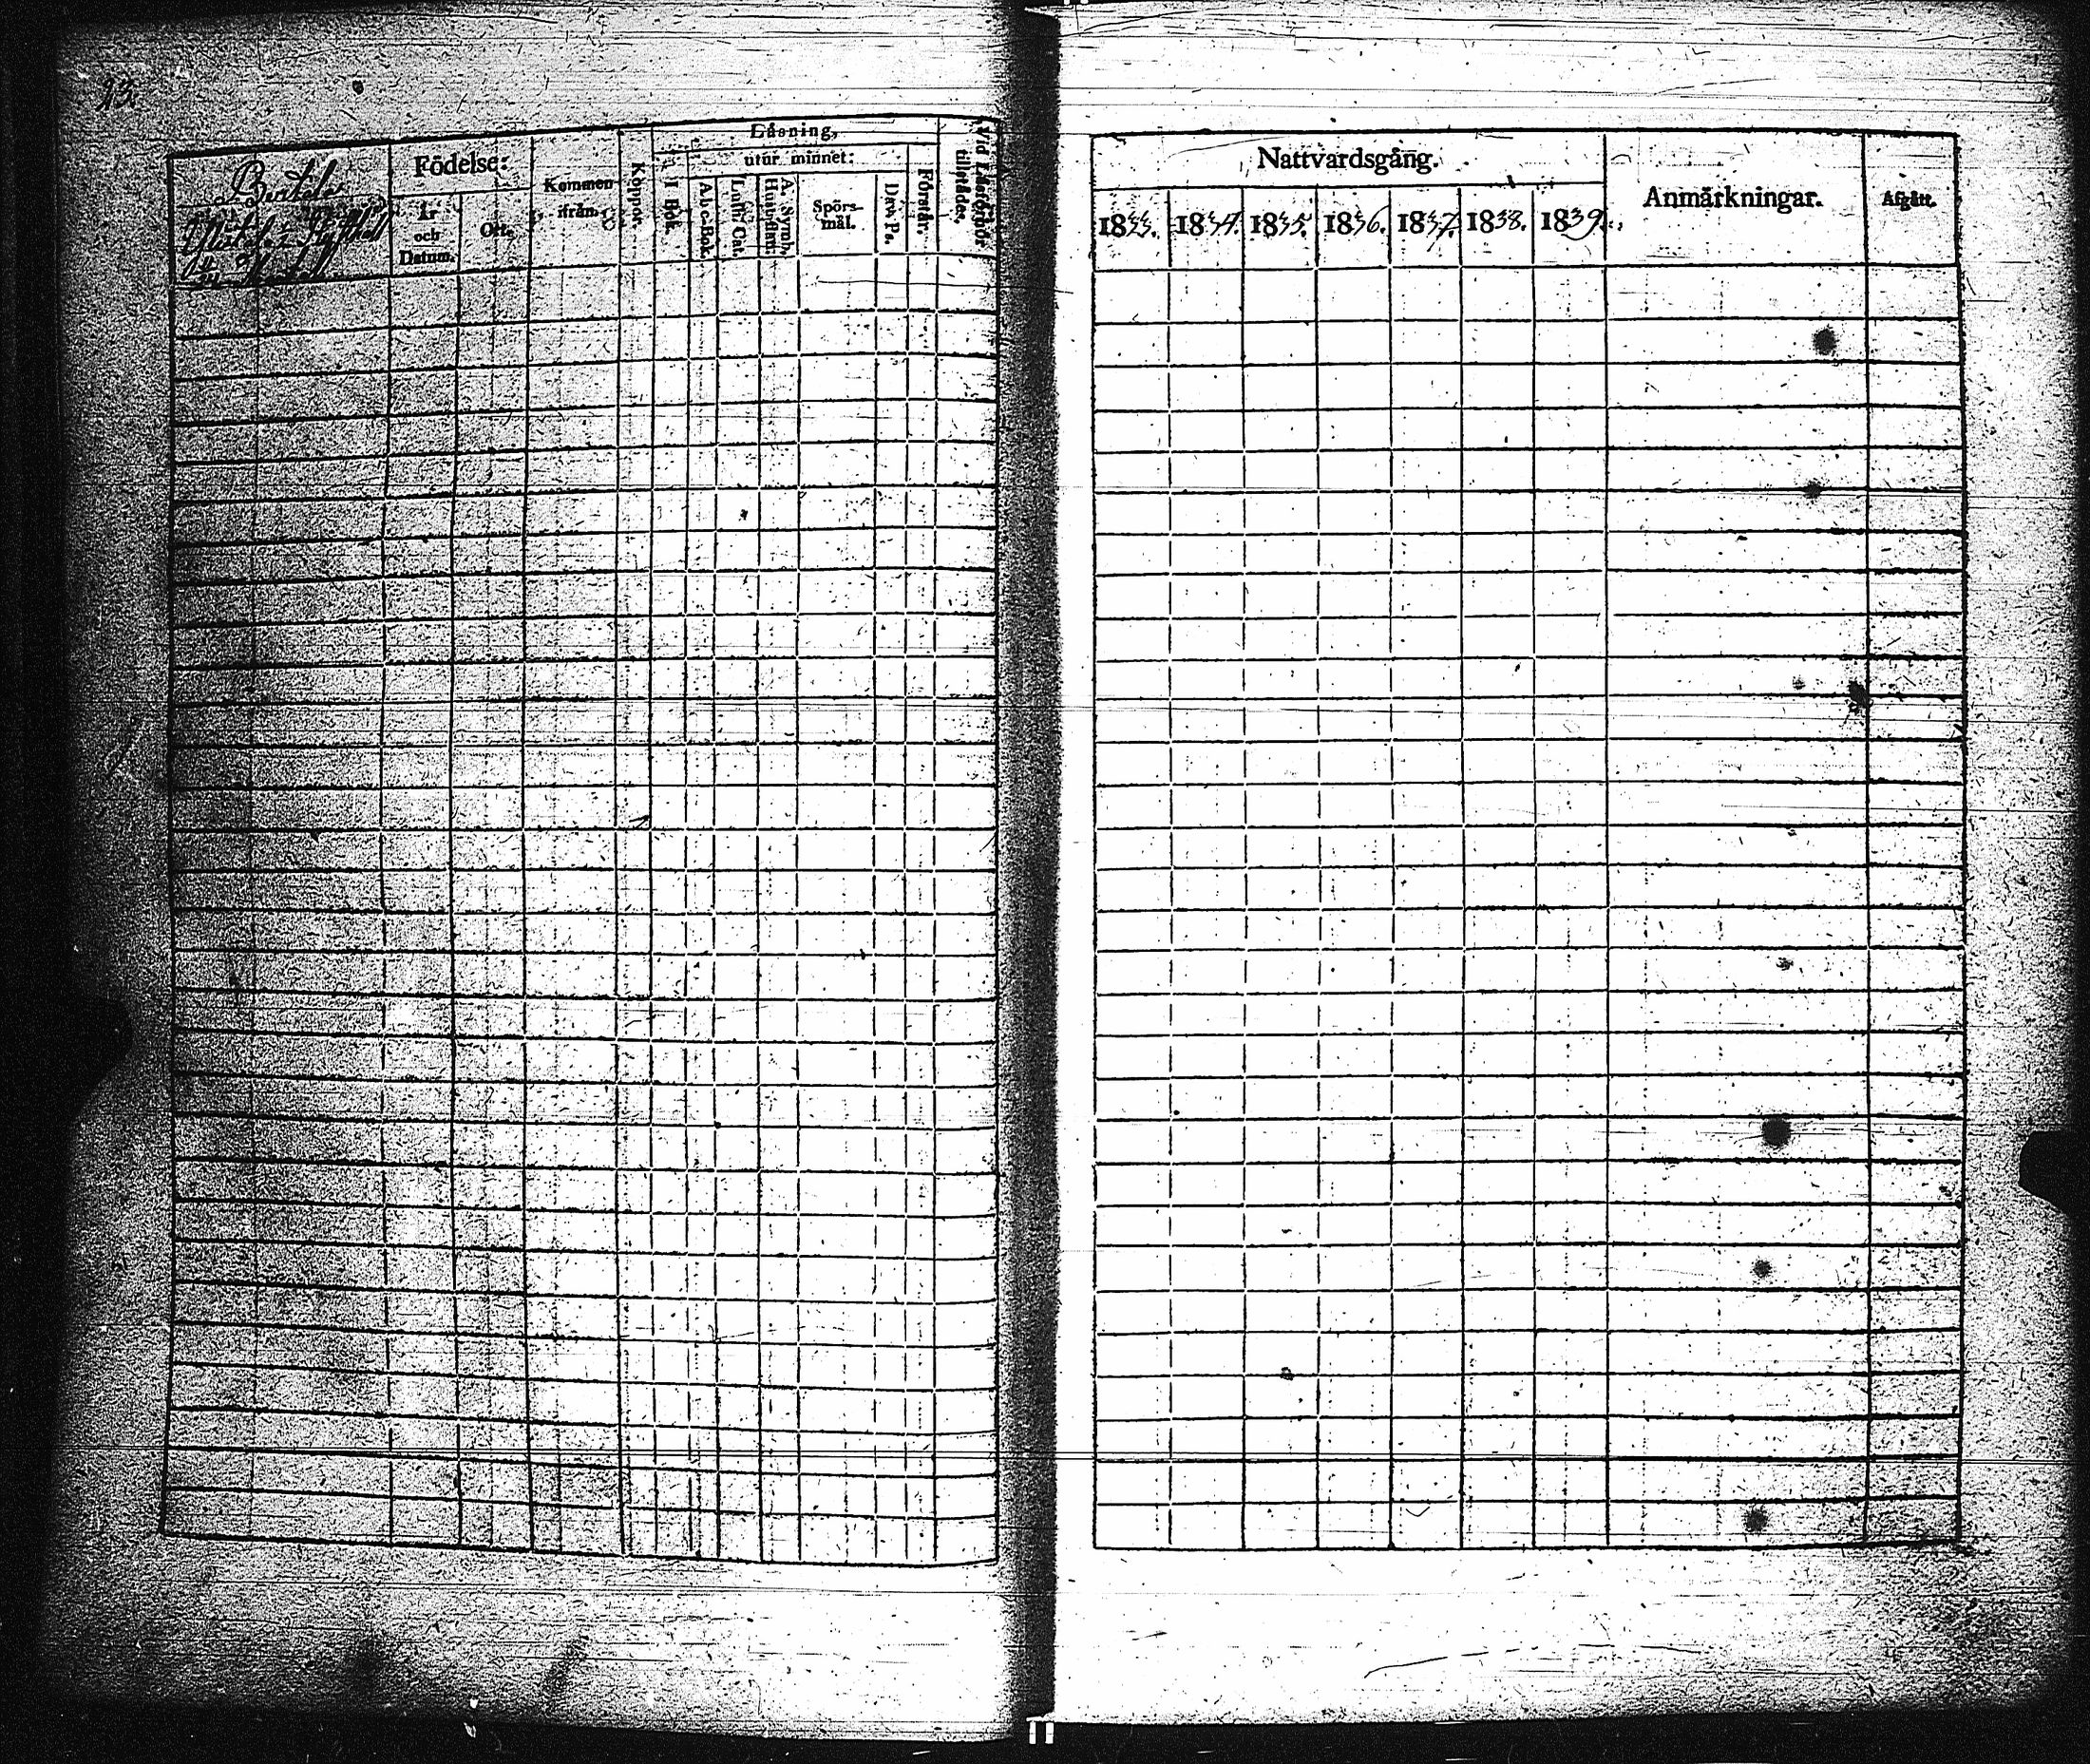 23.
Bertela
Födelse:
År och Datum.
Ort.
Kommen ifrån.
Koppor.
Läsning,
I Bok.
utur minnet:
A b c-Bok.
Luth. Cat.
A. Symb. Hustafl.
Spörsmål.
Dav. Ps.
Förstår.
Vid Läseförhör tillstädes.
Nattvardsgång.
1833. 1834. 1835. 1836. 1837. 1838. 1839.
Anmärkningar.
Afgått.